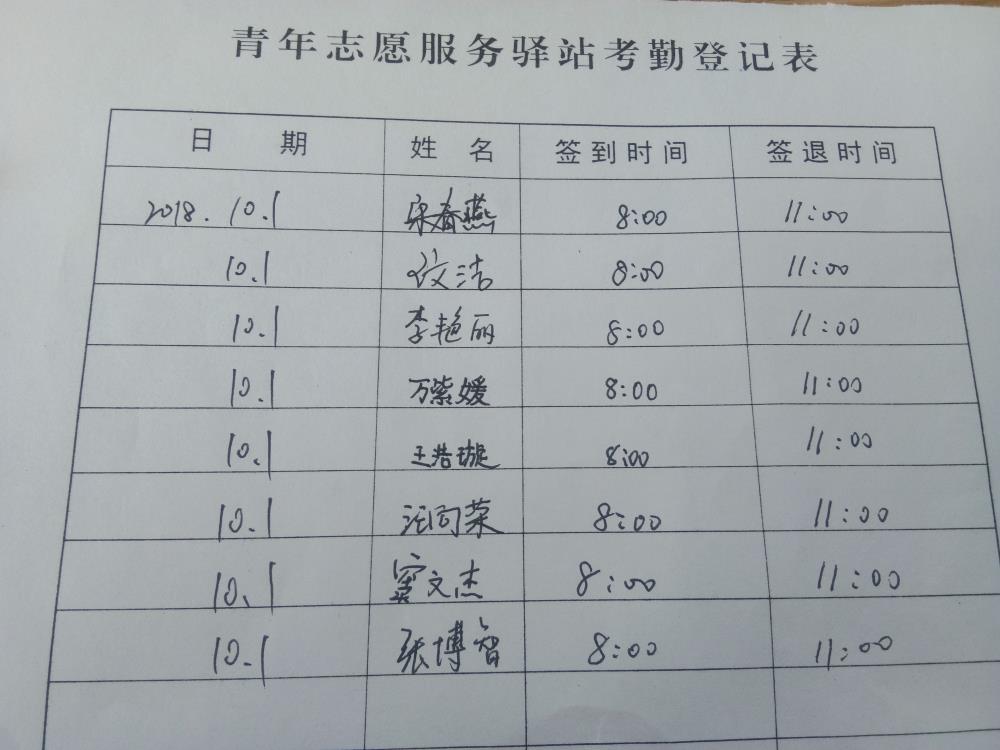 青年志愿服务驿站考勤登记表
日 期 姓 名 签到时间 签退时间
2018.10.1 宋春燕 8:00 11:00
10.1 洁 8:00 11:00
10.1 李艳丽 8:00 11:00
10.1 万紫媛 8:00 11:00
10.1 王浩璇 8:00 11:00
10.1 汪向荣 8:00 11:00
10.1 窦文杰 8:00 11:00
10.1 张博智 8:00 11:00